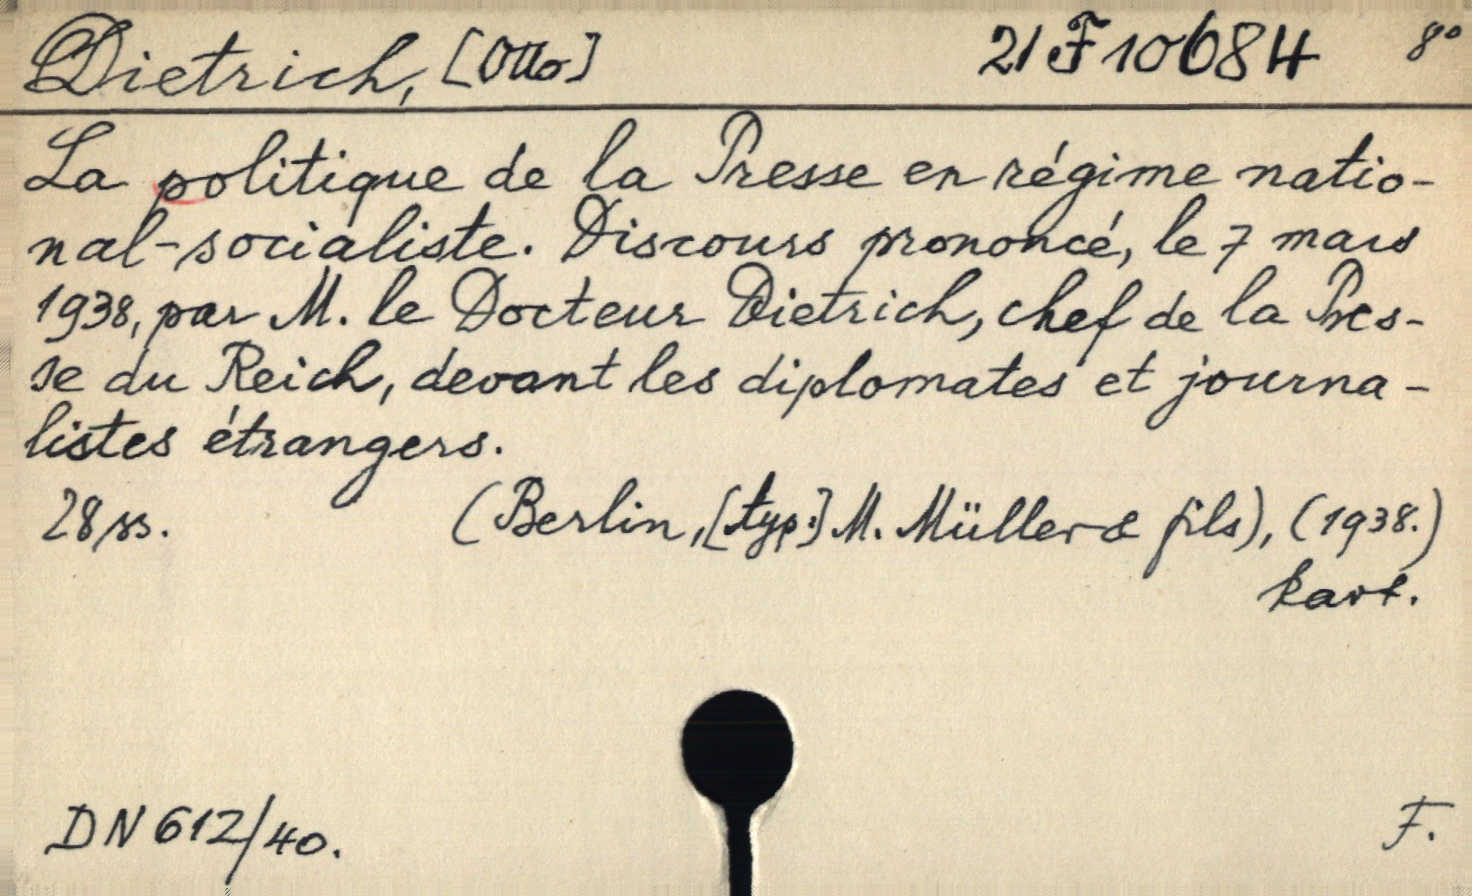 Dietrich, [Otto] 21 F 10684 8°
La politique de la Presse en régime natio-
nal-socialiste. Discours prononcé, le 7 mars
1938, par M. le Docteur Dietrich, chef de la Pres-
se du Reich, devant les diplomates et journa-
listes étrangers.
28 ss. (Berlin, [typ.] M. Müller & fils), (1938.)
kart.
DN 612/40. F.